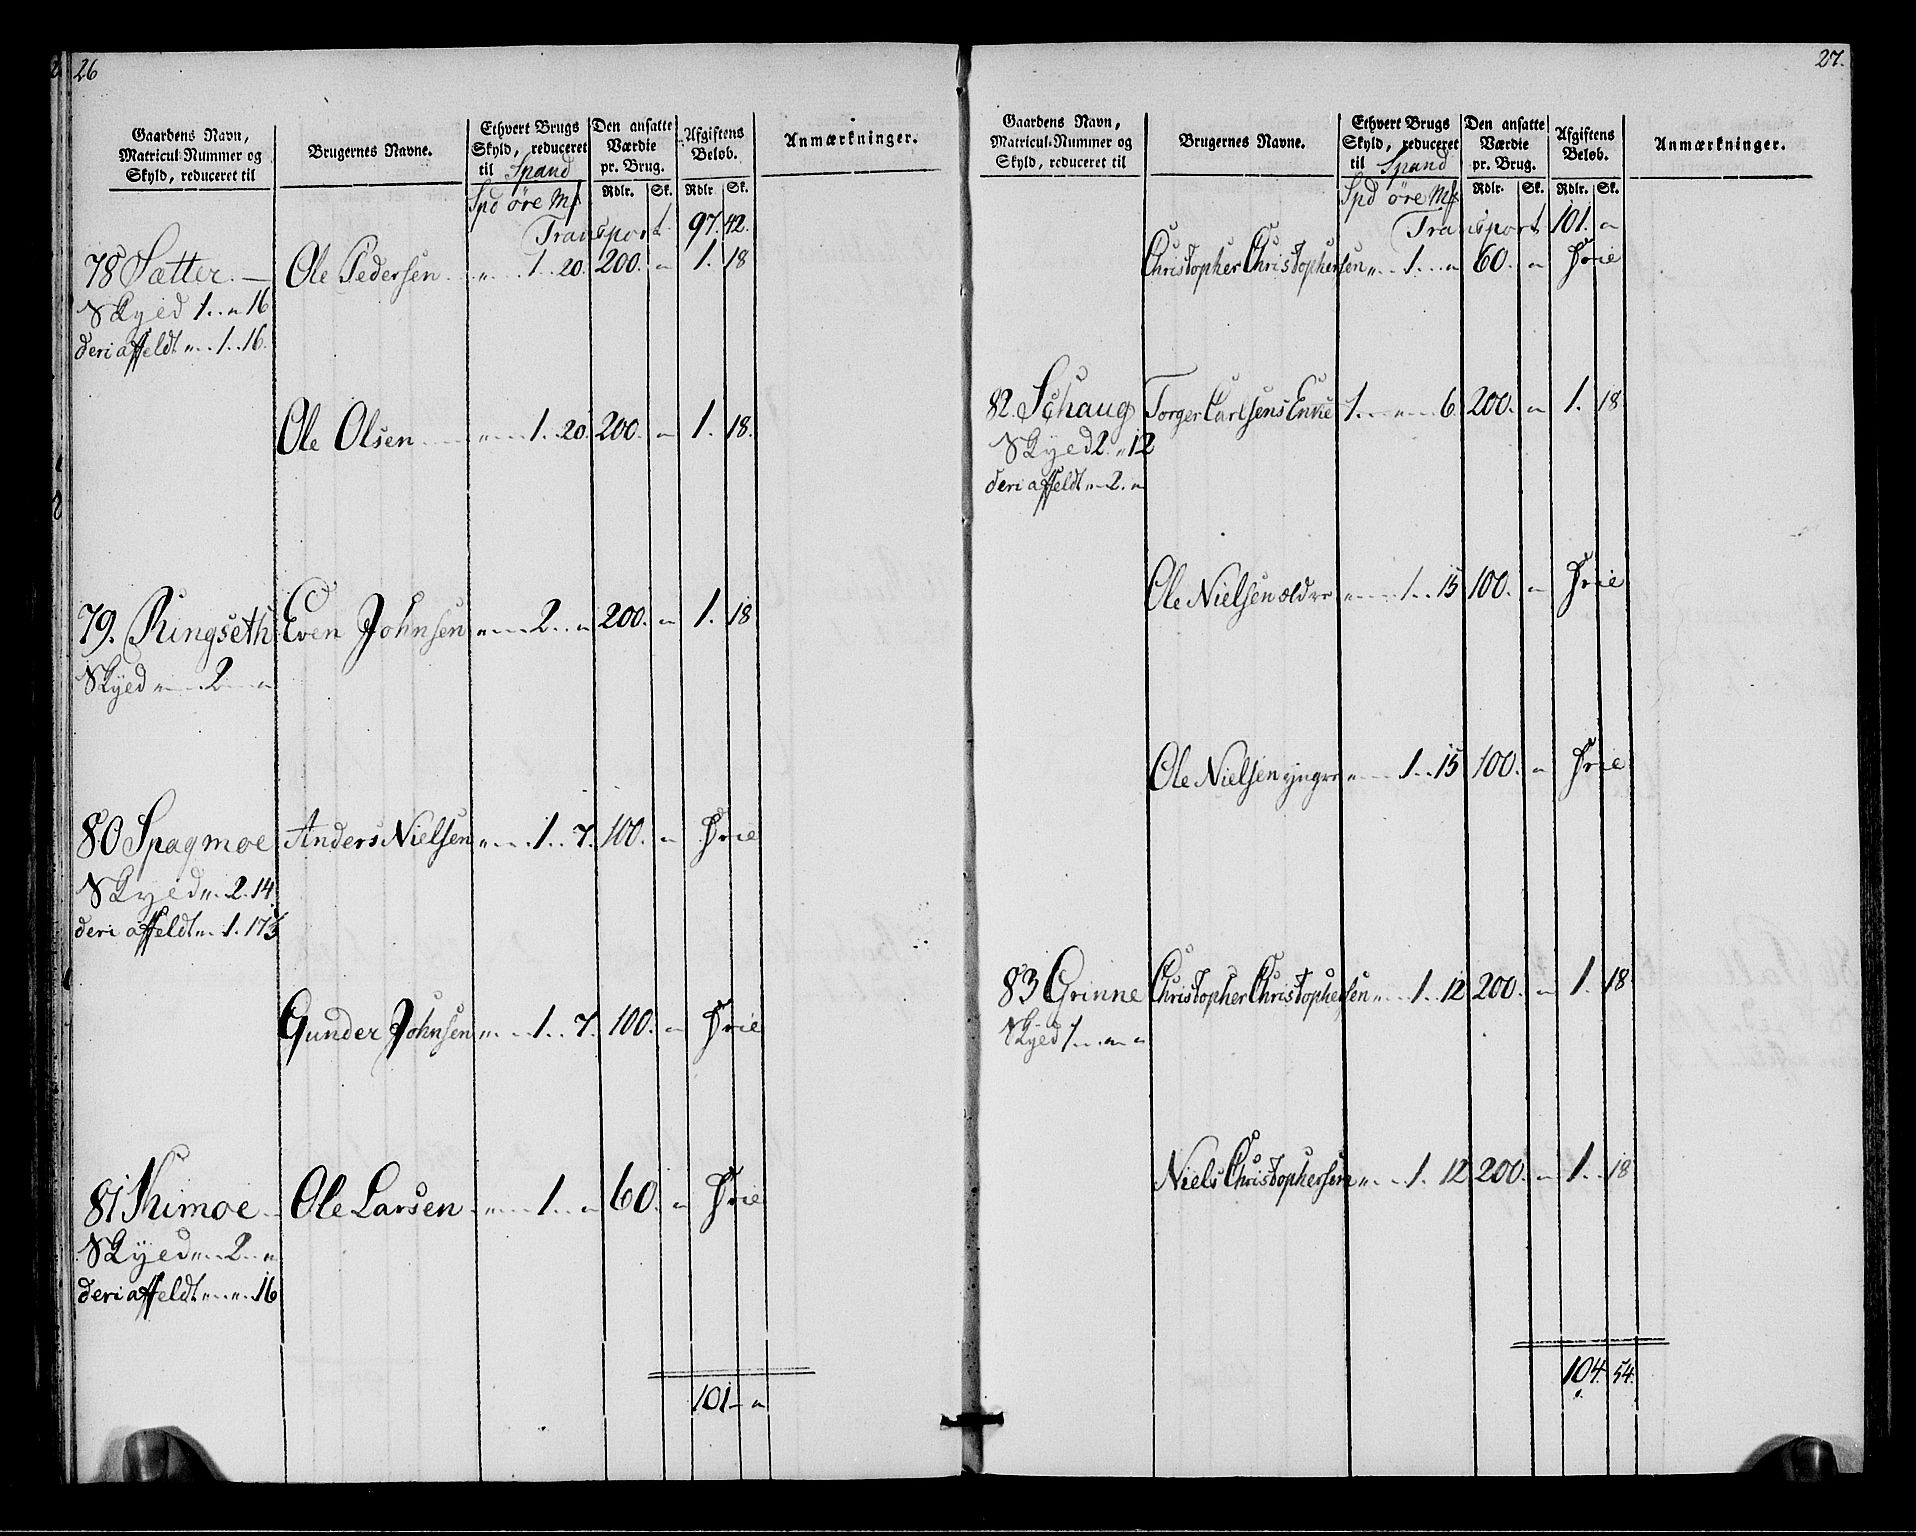 26
Gaardens Navn, Matricul-Nummer og Skyld, reduceret til
Brugernes Navne.
Ethvert Brugs Skyld, reduceret til Spand
Den ansatte Værdie pr. Brug.
Afgiftens Beløb.
Anmærkninger.
Rdlr. Sk. Rdlr. Sk.
Spd øre Mk
Transport 97. 42.
78 Sætter. Ole Pedersen " 1. 20. 200. " 1. 18
Skyld 1. " 16
deri affeldt " 1. 16.
Ole Olsen " 1. 20. 200. " 1. 18.
79. Ringseth Even Johnsen " 2. " 200. " 1. 18
Skyld " 2 "
80 Spagmoe Anders Nielsen " 1. 7. 100. " Frie
Skyld " 2. 14
deri affeldt " 1. 17⅓
Gunder Johnsen " 1. 7. 100. " Frie
81 Ole Larsen " 1. " 60. " Frie
Skyld " 2 "
deri affeldt " " 16
101 "
27.
Gaardens Navn, Matricul-Nummer og Skyld, reduceret til
Brugernes Navne.
Ethvert Brugs Skyld, reduceret til Spand
Den ansatte Værdie pr. Brug.
Afgiftens Beløb.
Anmærkninger.
Rdlr. Sk. Rdlr. Sk.
Spd øre Mk
Transport 101. "
Christopher Christophersen " 1. " 60. " Frie
82. Schaug Torger Carlsens Enke 1. " 6. 200. " 1. 18
Skyld 2. " 12
deri affeldt " 2. "
Ole Nielsen ældre " 1. 15 100. " Frie
Ole Nielsen yngre " 1. 15 100. " Frie
83 Grinne Christopher Christophersen " 1. 12 200. " 1. 18
Skyld 1 " "
Niels Christophersen " 1. 12 200. " 1. 18
104. 54.